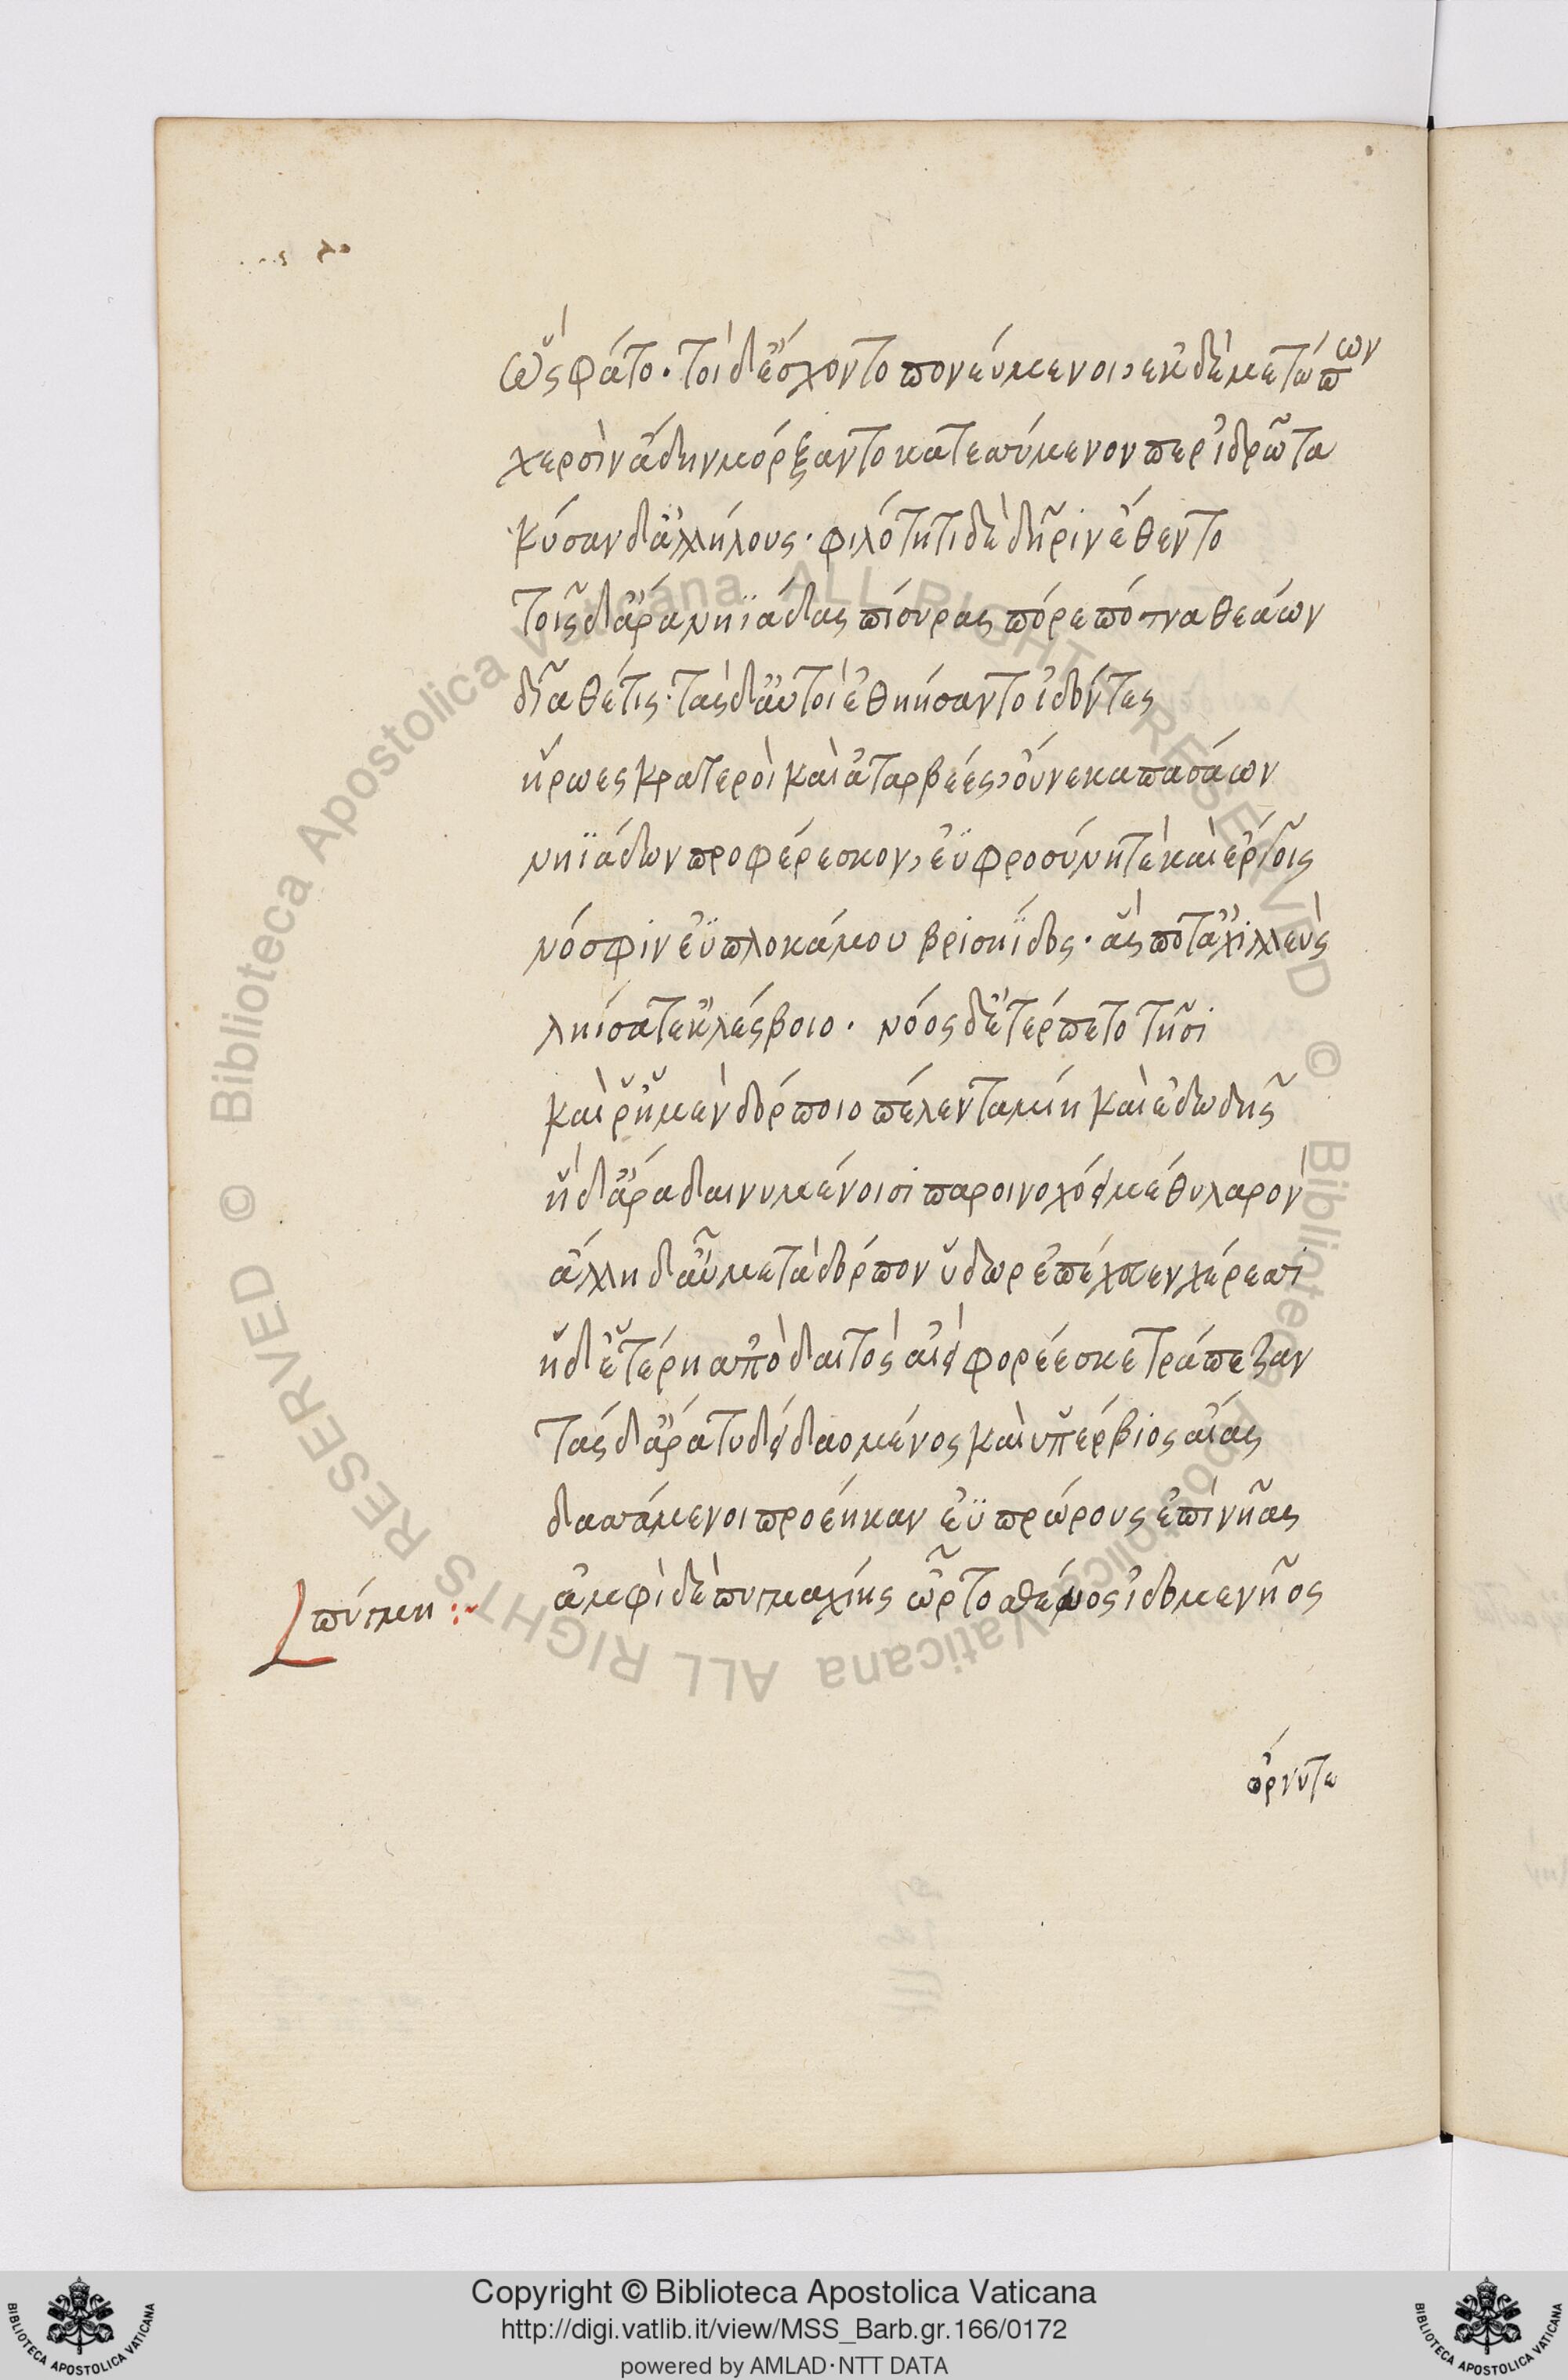 ὣς φάτο· τοὶ δ' ἔσχοντο πονεύμενοι, ἐκ δὲ μετώπων
χερσὶν ἄδην μόρξαντο κατεσσύμενόν περ ἱδρῶτα
κύσαν δ' ἀλλήλους· φιλότητι δὲ δῆριν ἔθεντο
τοῖς δ' ἄρα ληϊάδας πίσυρας πόρε πότνα θεάων
δῖα θέτις· τὰς δ' αὐτοὶ ἐθηήσαντο ἰδόντες
ἥρωες κρατεροὶ καὶ ἀταρβέες, οὕνεκα πασάων
ληϊάδων προφέρεσκον, ἐϋφροσύνη τὲ καὶ ἔργοις
νόσφιν ἐϋπλοκάμου βρισηΐδος· ἃς ποτ' ἀχιλλεὺς
ληίσατ' ἐκ λέσβοιο· νόος δ' ἐτέρπετο τῆσι
καί ῥ' ἡ μὲν δόρποιο πέλεν ταμίη καὶ ἐδωδῆς
ἡ δ' ἄρα δαινυμένοισι παροινοχόει μέθυ λαρὸν
ἄλλη δ' αὖ μετὰ δόρπον ὕδωρ ἐπέχευεν χέρεσσι
ἡ δ' ἑτέρη ἀπὸ δαιτὸς αἰεὶ φορέεσκε τράπεζαν
τὰς δ' ἄρα τυδείδαο μένος καὶ ὑπέρβιος αἴας
δασσάμενοι προέηκαν ἐϋπρώρους ἐπὶ νῆας
πύγμη :~ ἀμφὶ δὲ πυγμαχίης ὦρτο σθένος ἰδομενῆος
ὤρνυτο
Copyright © Biblioteca Apostolica Vaticana
http://digi.vatlib.it/view/MSS_Barb.gr.166/0172
powered by AMLAD·NTT DATA
BIBLIOTECA APOSTOLICA VATICANA
BIBLIOTECA APOSTOLICA VATICANA
© Biblioteca Apostolica Vaticana ALL RIGHTS RESERVED © Biblioteca Apostolica Vaticana ALL RIGHTS RESERVED